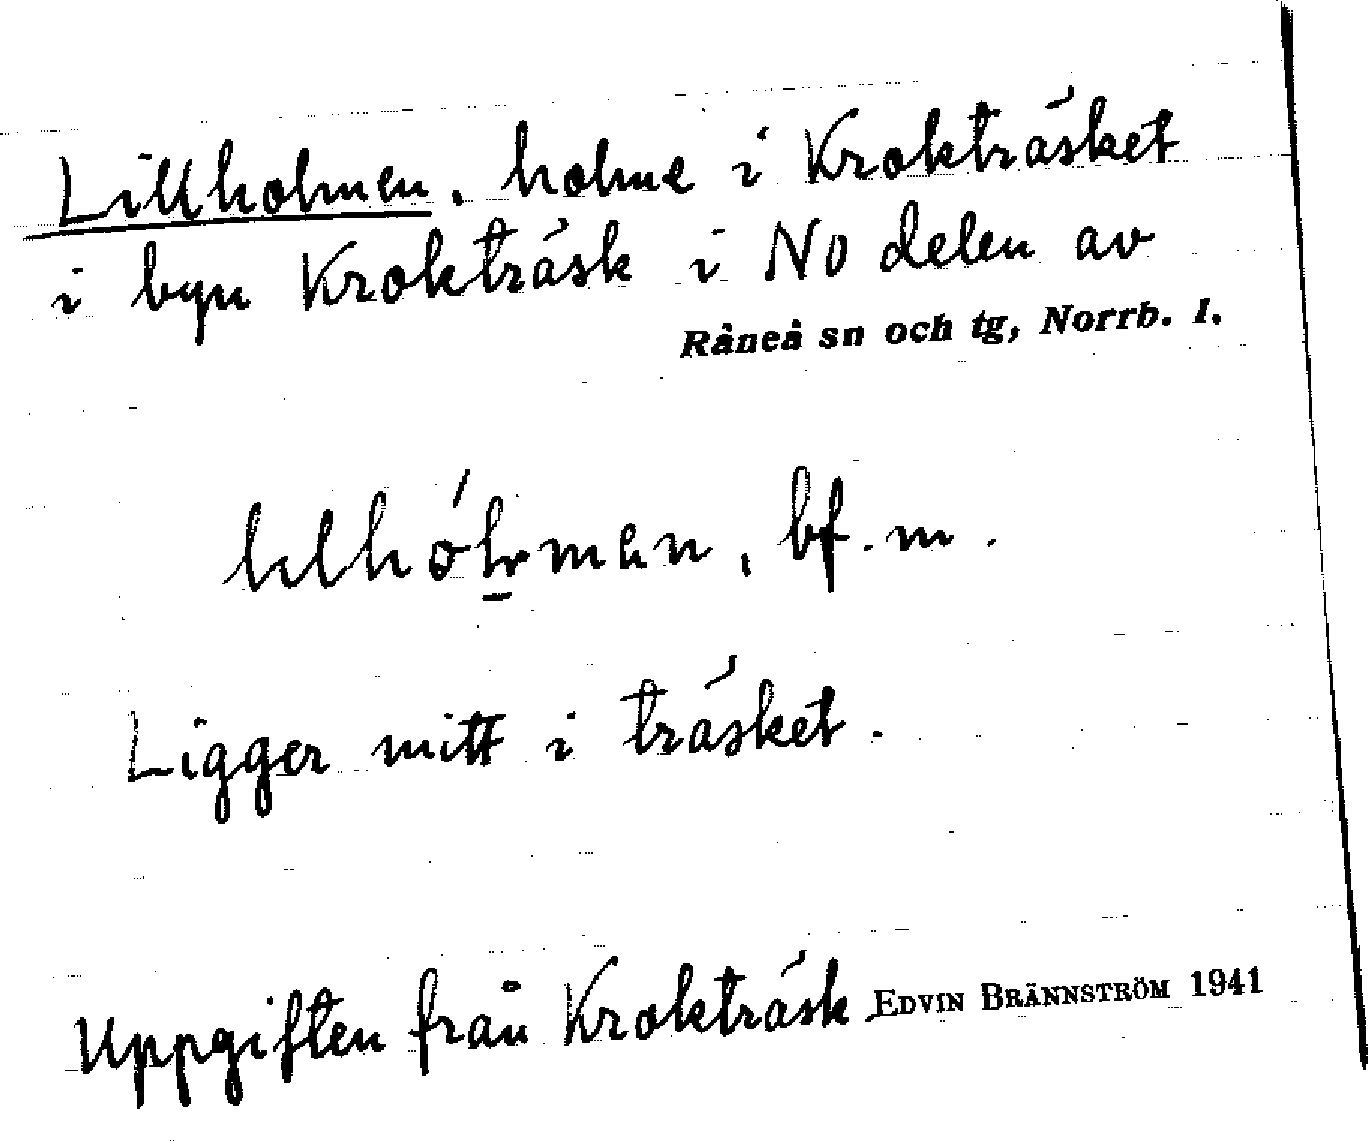 Lillholmen, holme i Krokträsket
i byn Krokträsk i NO delen av
Råneå sn och tg, Norrb. l.
bf. m.
Ligger mitt i träsket.
Uppgiften från Krokträsk EDVIN BRÄNNSTRÖM 1941